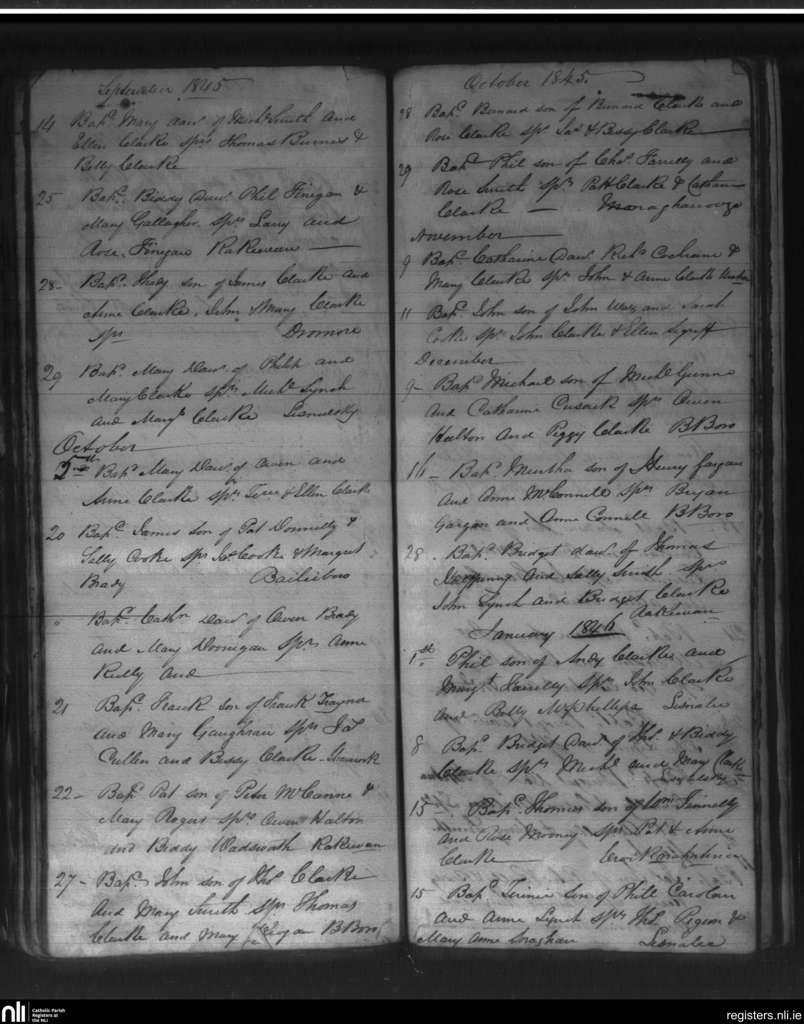 September 1845
14 Bapd. Mary Daur. of Michl. Smith and
Ellen Clarke Sprs Thomas Burnes &
Betty Clarke
25 Bapd. Biddy Daur. Phil Finegan &
Mary Gallagher Sprs Larry and
Rose Finegan Rakeevan
28 - Bapd. son of James Clarke and
Anne Clarke, John & Mary Clarke
Sprs Dromore
29 Bapd. Mary Daur. of Philip and
Mary Clarke Sprs Michl. Lynch
and Margt. Clarke
October
Bapd. Mary Daur. of Owen and
Anne Clarke Sprs & Ellen Clarke
20 Bapd. James son of Pat Donnelly &
Sally Cooke Sprs Cooke & Margret
Brady Bailieboro
Bapd. Cathn Daur of Owen Brady
and Mary Donnigan Sprs Anne
Reilly and
21 Bapd. Frank son of Frank Traynor
and Mary Gaughran Sprs Jas
Cullen and Bessy Clarke
22 - Bapd. Pat son of Peter McCanne &
Mary Rogers Sprs Owen Halton
and Biddy Wadsworth Rakeevan
27 - Bapd. John son of Thos Clarke
And Mary Smith Sprs Thomas
Clarke and Mary BBoro
October 1845.
28 Bapd. Bernard son of Bernard Clarke and
Rose Clarke Sprs Jas & Bessy Clarke
29 Bapd. Phil son of Chas. Farrelly and
Rose Smith Sprs Patt Clarke &
Clarke
November
9 Bapd. Catharine Daur. Richd. Cochrane &
Mary Clarke Sprs John & Anne Clarke
11 Bapd. John son of John and Sarah
Cooke Sprs John Clarke & Ellen
December
9 - Bapd. Michael son of Michl. Gunne
and Catharine Cusack Sprs Owen
Halton and Peggy Clarke BBoro
16 - Bapd. son of Henry Gargan
and Anne McConnell Sprs Bryan
Gargan and Anne Connell BBoro
28 . Bapd. Bridget daur. of Thomas
and Sally Smith Sprs
John Lynch and Bridget Clarke
Rakeevan
January 1846
1st. Phil son of Andy Clarke and
Margt. Farrelly Sprs John Clarke
and Betty McPhillips Lisnalee
8 Bapd. Bridget Daur of Thos. & Biddy
Clarke Sprs Michl. and Mary Clarke
15 - Bapd. Thomas son of Wm. Finnelly
and Rose Mooney Sprs Pat & Anne
Clarke
15 Bapd. son of Phill Carolan
and Anne Lynch Sprs Thos. Pigeon &
Mary Anne Lisnalee
nli Catholic Parish
Registers at
the NLI
registers.nli.ie